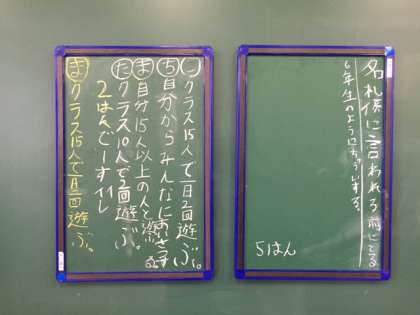 つ クラス15人で一日2回遊ぶ。
ち 自分からみんなにあいさつ
ま 自分15人以上の人と遊ぶ
た クラス10人で2回遊ぶ。
2はんでーす
ま クラス15人で一日一回遊ぶ。
名札係に言われる前にでる
6年生のように
5はん